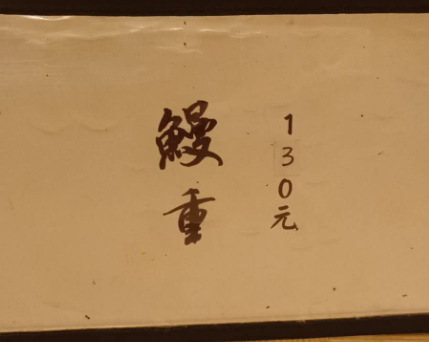 鰻重
130元